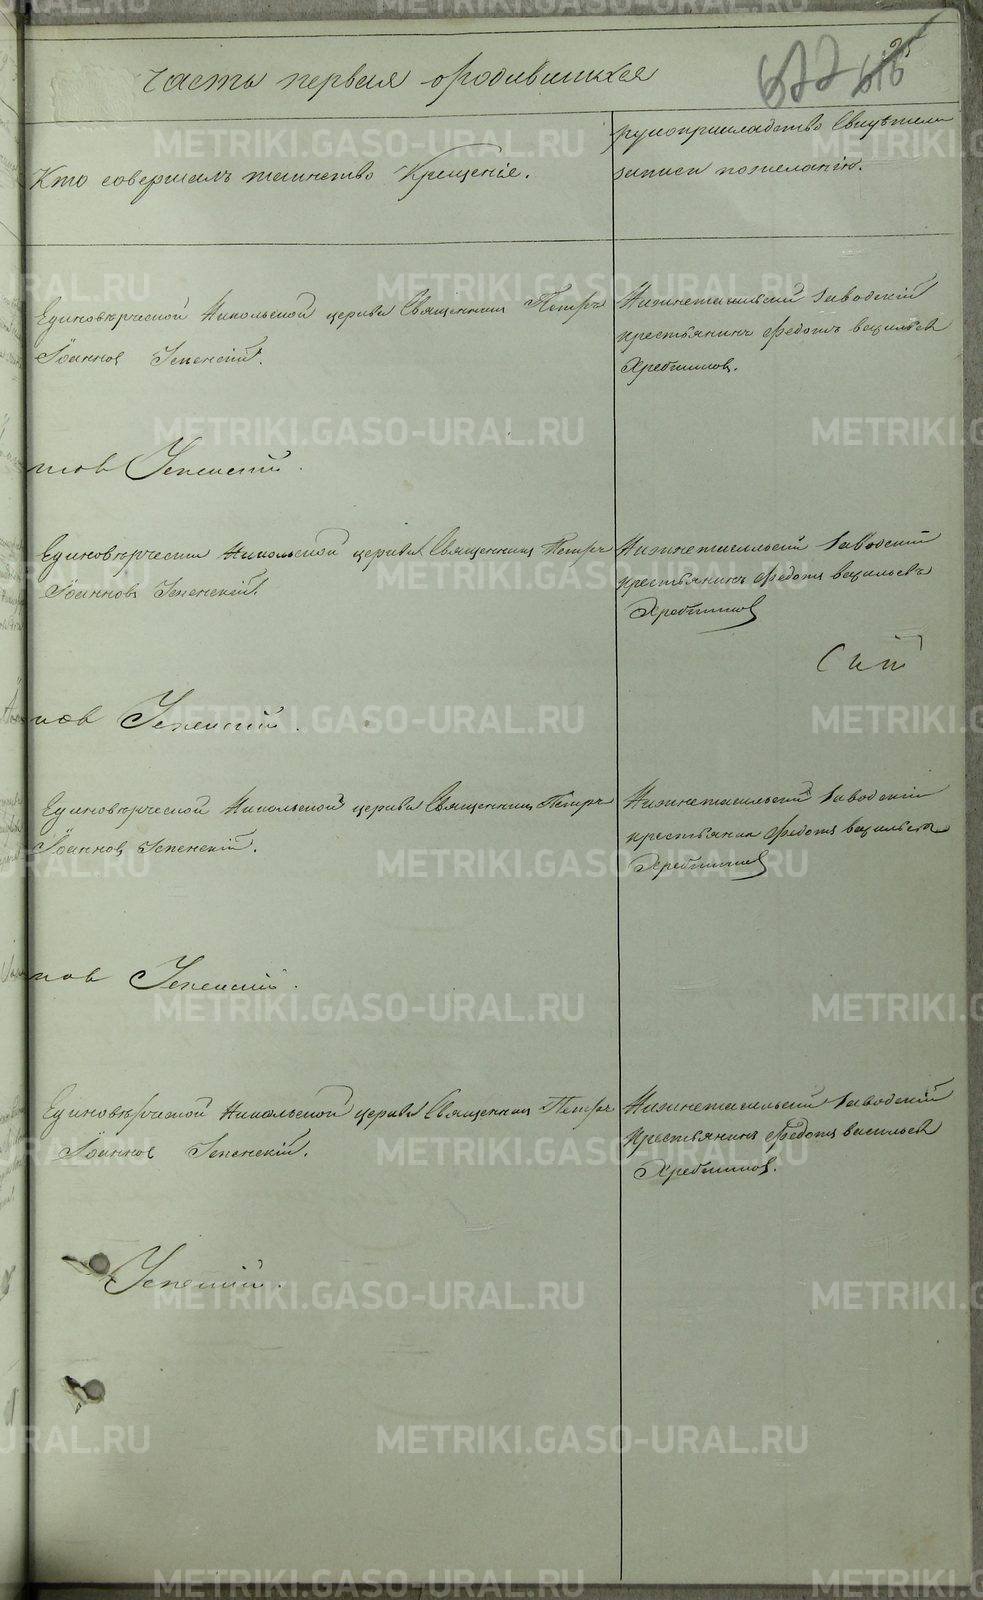 Часть первая о родившихся
677 616
25
Кто совершалъ таинство Крещенiе.
рукоприкладство Свидѣтелей
записи по желанiю.
Единовѣрческой Никольской церкви Священникъ Петръ
Iоанновъ Успенскiй.
Нижнетагильскiй Заводскiй
крестьянинъ Федотъ Васильевъ
Хребтиков.
нов Успенскiй.
Единовѣрческои Никольской церкви Священникъ Петръ
Iоанновъ Успенскiй.
Нижнетагильскiй Заводскiй
крестьянинъ Федотъ Васильевъ
Хребтиков
Сий
нов Успенскiй.
Единовѣрческой Никольской церкви Священникъ Петръ
Iоанновъ Успенскiй.
Нижнетагильскiй Заводскiй
крестьянин Федотъ Васильевъ
Хребтиков
нов Успенскiй.
Единовѣрческой Никольской церкви Священникъ Петръ
Iоаннов Успенскiй.
Нижнетагильскiй Заводскiй
крестьянинъ Федотъ Васильев
Хребтиков.
Успенскiй.
METRIKI.GASO-URAL.RU